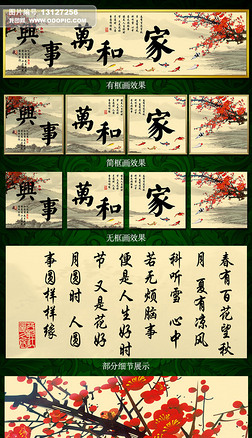 图片编号:13127256
我图网 www.OOOPIC.com
家和萬事興
有框画效果
家和萬事興
简框画效果
家和萬事興
无框画效果
春有百花望秋
月 夏有凉风
科听雪 心中
若无烦脑事
便是人生好时
节 又是花好
月圆时 人圆
事圆样样缘
部分细节展示